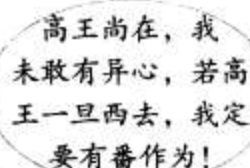 高王尚在，我
未敢有异心，若高
王一旦西去，我定
要有番作为！